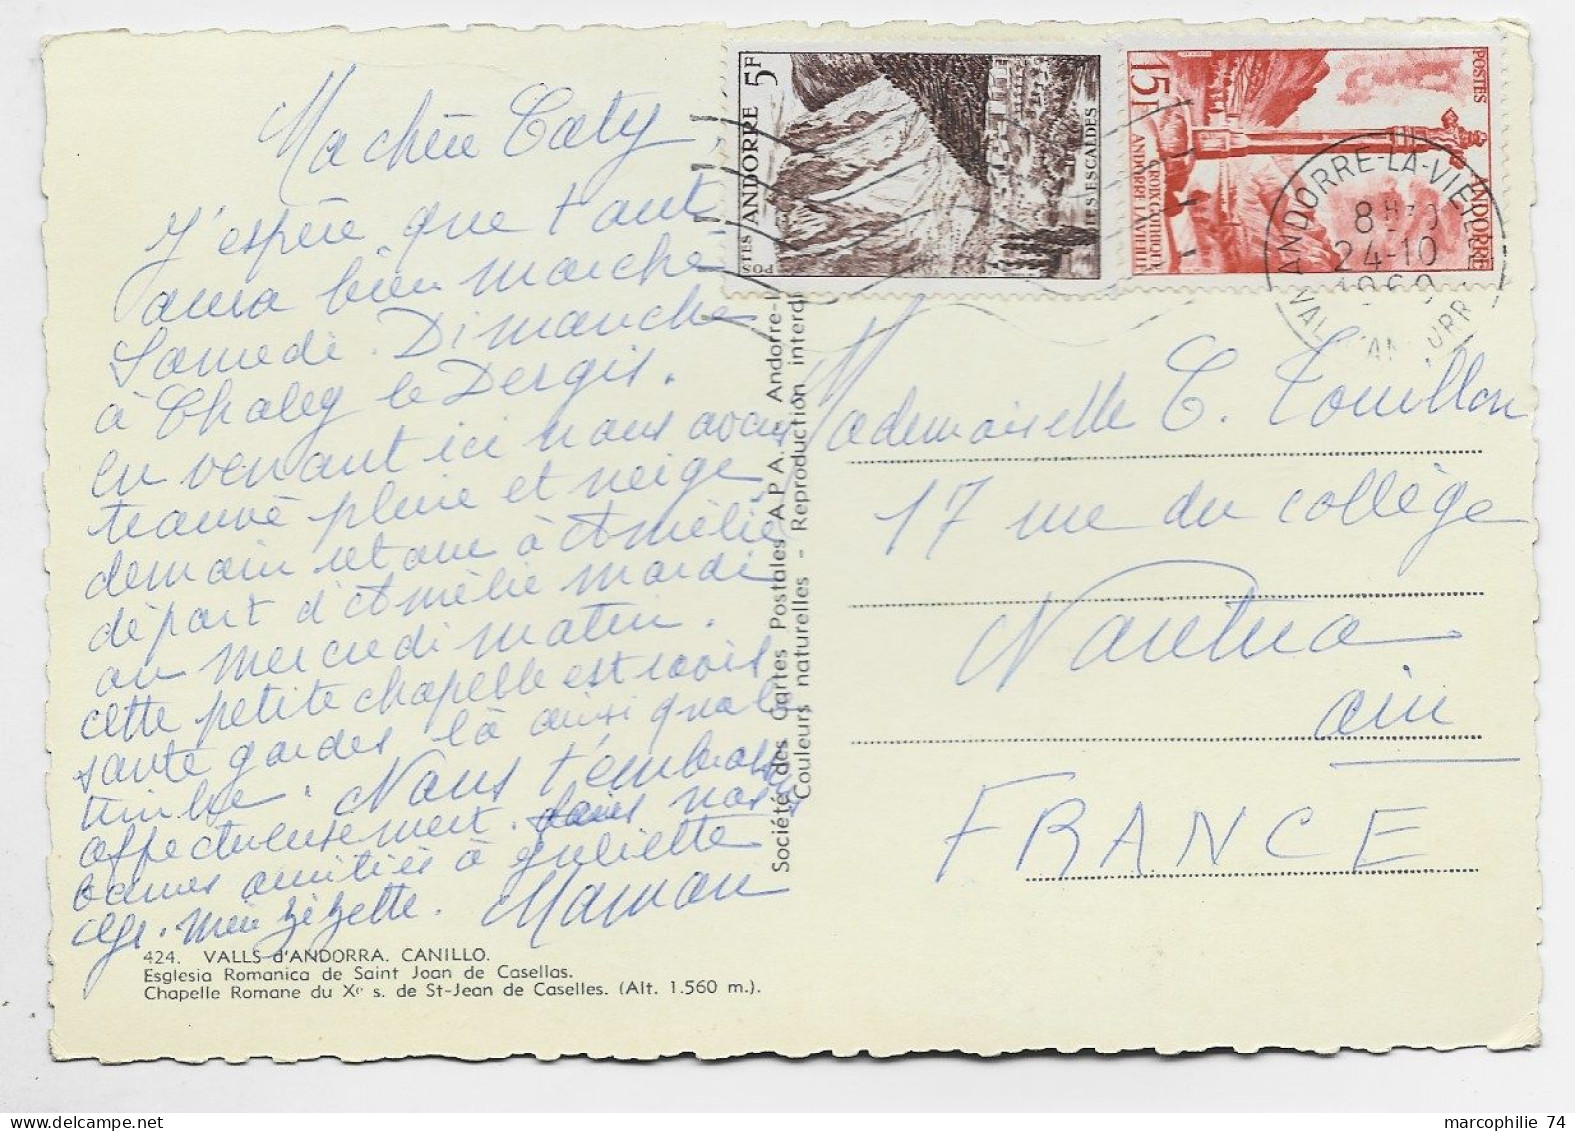 Ma chère Caty
J'espère que tout
aura bien marché
Samedi. Dimanche
à Chaley le Dergis.
en venant ici nous avons
trouvé pluie et neige
demain retour à Amélie
départ d'Amélie mardi
ou mercredi matin.
cette petite chapelle est ravis
sante gardes là ainsi que le
timbre. Nous t'embrassons
affectueusement. fais nos
bonnes amitiés à Juliette
Maman
424. VALLS d'ANDORRA. CANILLO.
Esglesia Romanica de Saint Joan de Casellas.
Chapelle Romane du Xe s. de St-Jean de Caselles. (Alt. 1.560 m.).
Société des Cartes Postales A.P.A. - Andorre-l
Couleurs naturelles - Reproduction interdi
POSTES ANDORRE 5F
LES ESCALDES
15F POSTES
ANDORRE
CROIX GOTHIQUE
ANDORRE LA VIEILLE
ANDORRE-LA-VIEILLE
24-10
1960
Mademoiselle C. Touillon
17 rue du collège
Nantua
ain
FRANCE
marcophilie 74